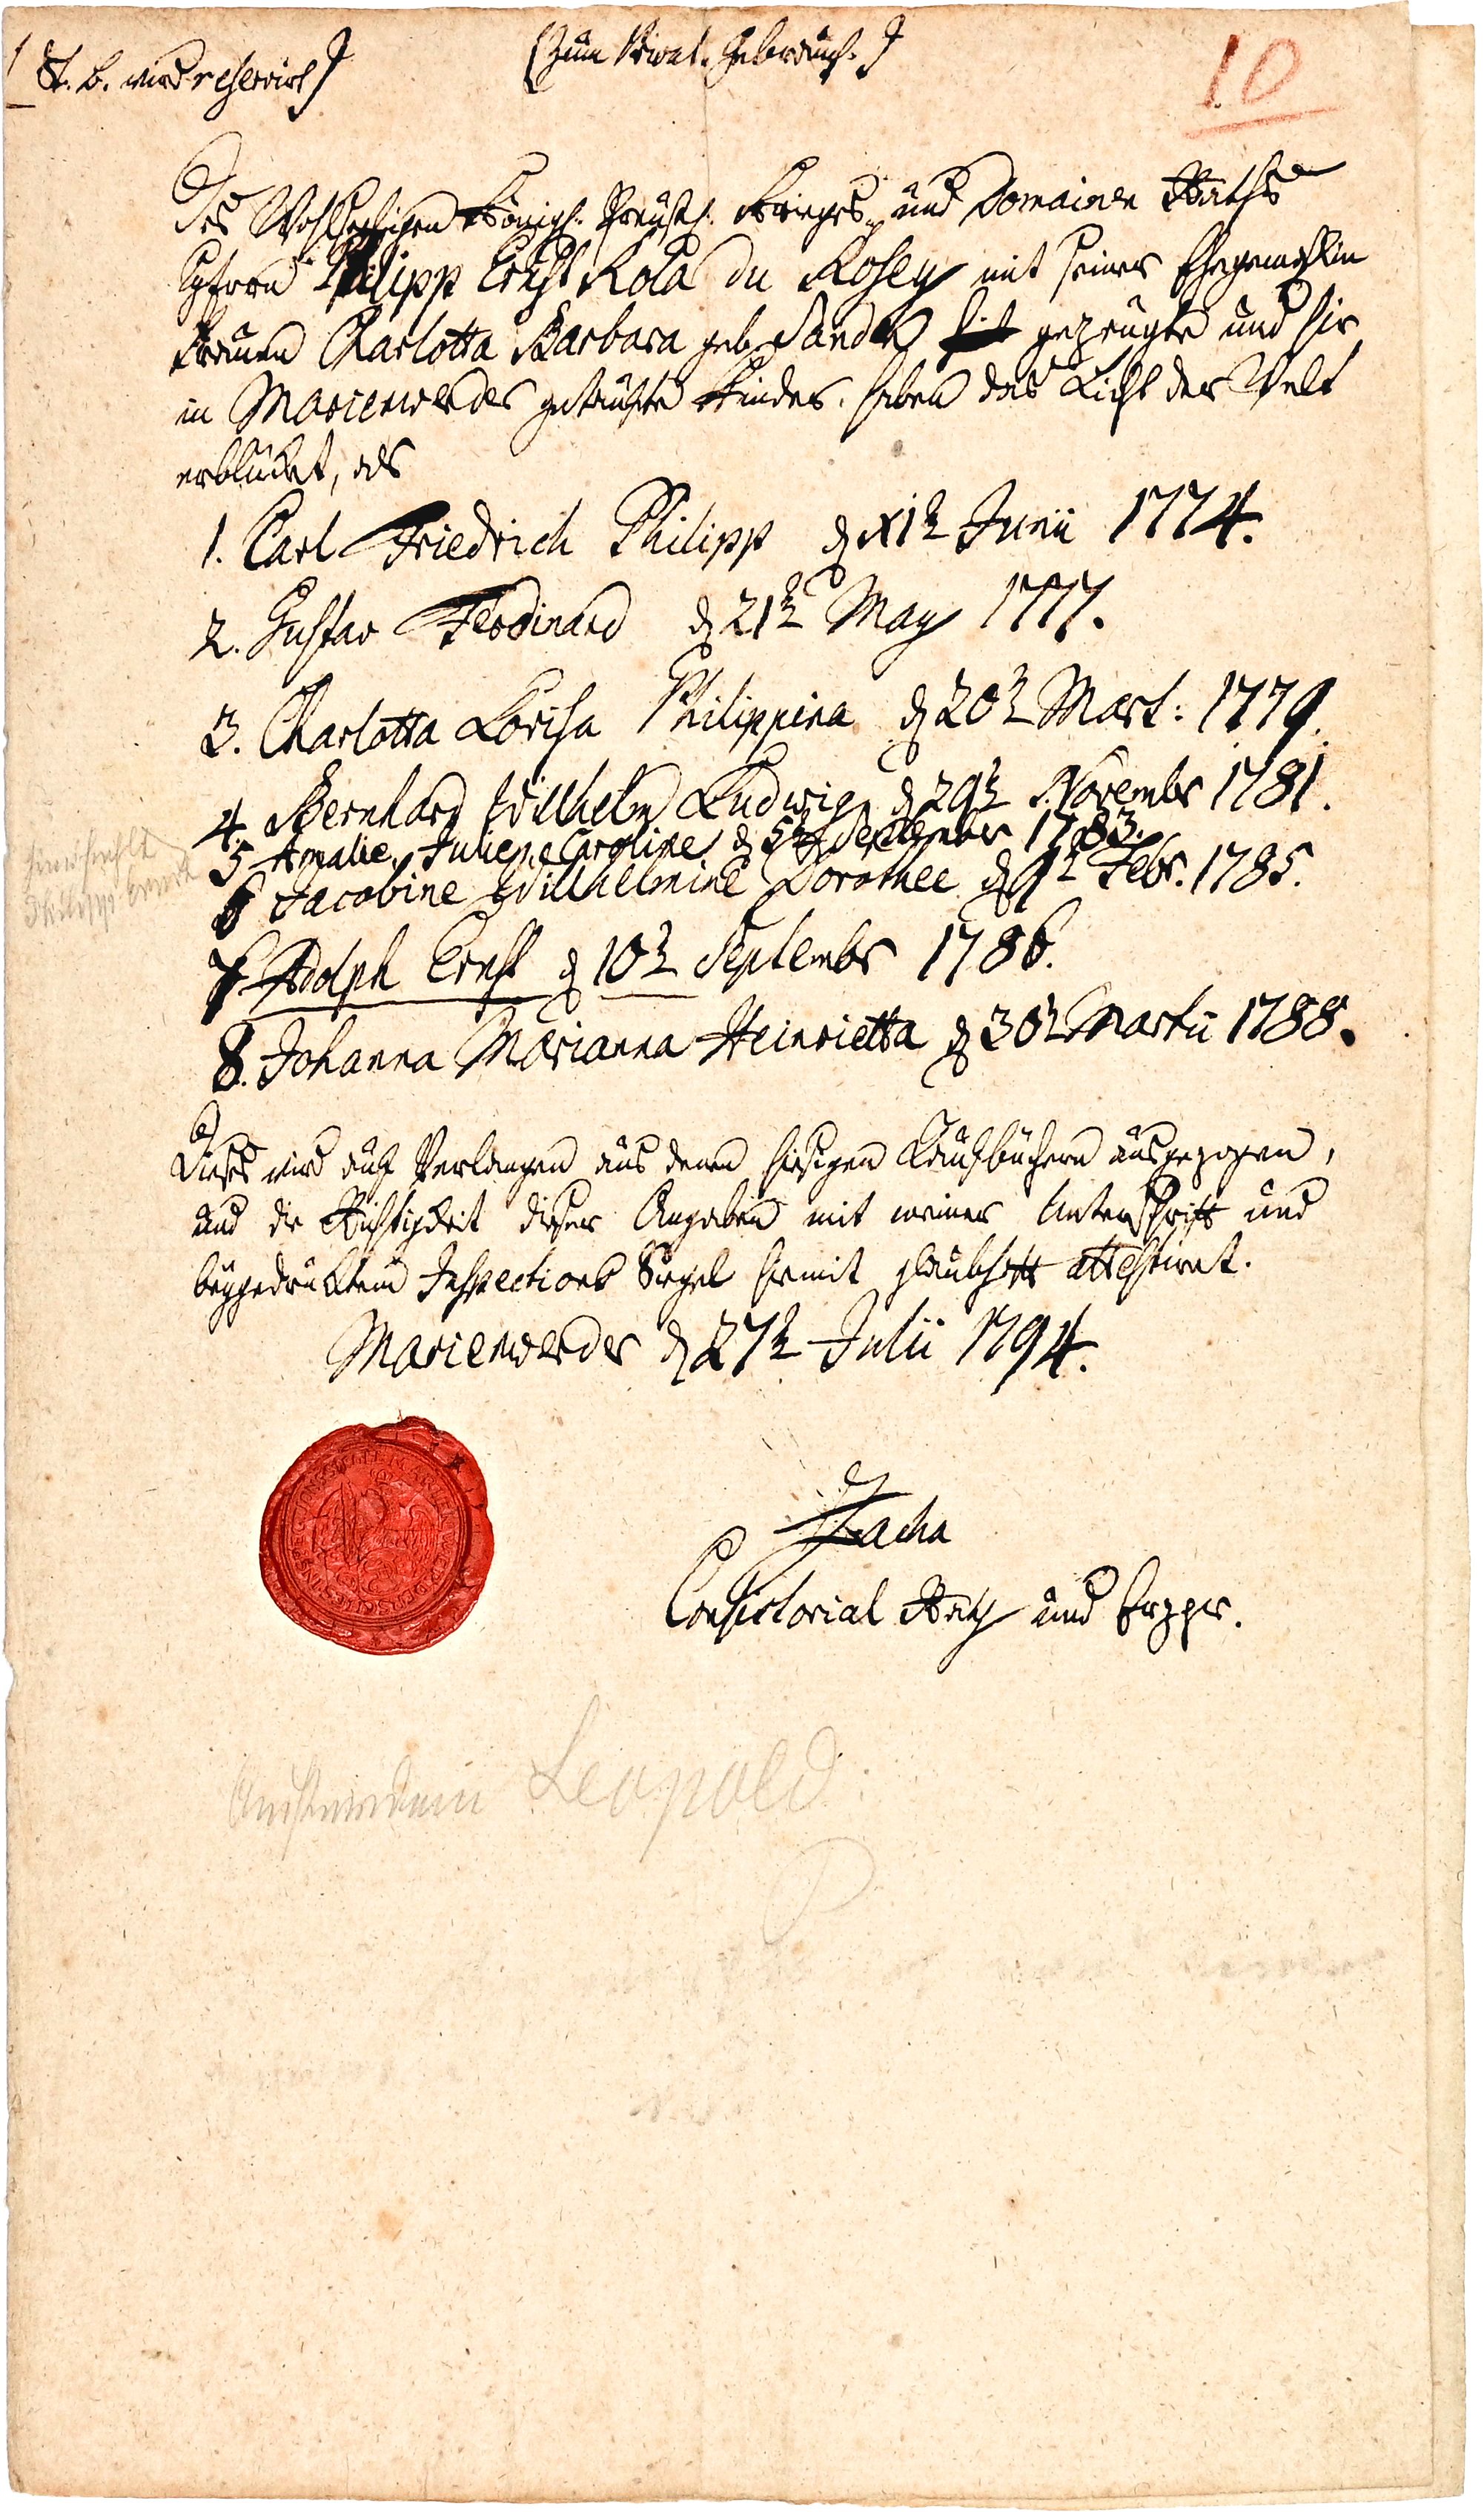 St. B. wird reservirt
(Zum Privat-Gebrauch.)
10
Des Wohlseeligen Königl. Preusch. Krieges- und Domainen Raths
Herrn Philipp Ernst Rola du Rosey mit seiner Ehegemahlin
Frauen Charlotta Barbara geb. Sanden gezeugte und hie
in Marienwerder getaufte Kinder. haben das Licht der Welt
erblicket, als
1. Carl Friedrich Philipp d Junii 1774.
2. Gustav Ferdinand d 21t May 1777.
3. Charlotta Lovisa Philippina d 20t Mart: 1779.
4. Bernhard Wilhelm Ludwig d 29t Novembr 1781.
5 Amalie, Juliene Caroline d 5t 1783.
6 Jacobine Willhelmine Dorothee d 9t Febr. 1785.
7 Adolph Ernst d 10t Septembr 1786.
8. Johanna Marianna Heinrietta d 30t Martii 1788.
Dieses wird auf Verlangen aus denen hiesigen Taufbüchern ausgezogen,
und die Richtigkeit dieser Angaben mit meiner Unterschrift und
beygedrucktem Inspections Siegel hiemit glaubhaft attestiret.
Marienwerder d 27t Julii 1794.
Zacha
Consistorial Rath und Erzpr.
Leopold